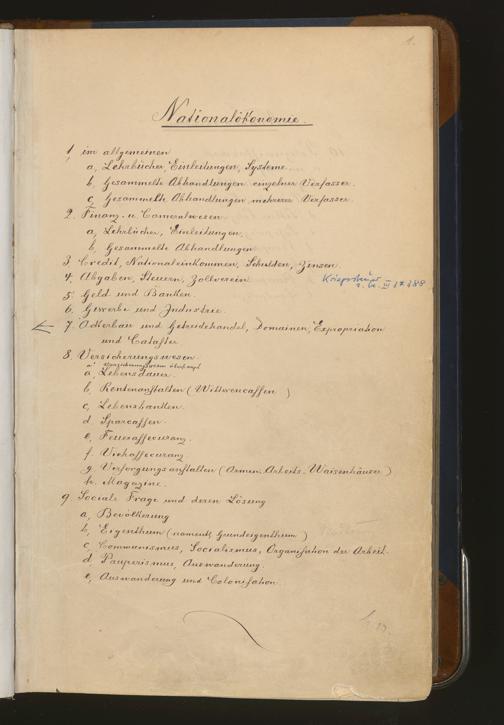 1.
Nationalökonomie.
1, im allgemeinen
a, Lehrbücher, Einleitungen, Systeme.
b, Gesammelte Abhandlungen einzelner Verfasser.
c, Gesammelte Abhandlungen mehrerer Verfasser.
2. Finanz- u. Cameralwesen
a, Lehrbücher, Einleitungen,
b, Gesammelte Abhandlungen
3. Credit, Nationaleinkommen, Schulden, Zinsen.
4. Abgaben, Steuern, Zollverein
5. Geld und Banken.
6. Gewerbe und Industrie.
7. Ackerbau und Getreidehandel, Domainen, Expropriation
und Cataster
8. Versicherungswesen.
a, Lebensdauer.
b, Rentenanstalten (Wittwencassen )
c, Lebensbanken.
d. Sparcassen.
e, Feuerassecuranz.
f. Viehassecuranz
g. Versorgungsanstalten (Armen- Arbeits- Waisenhäuser)
h. Magazine.
9. Sociale Frage und deren Lösung
a, Bevölkerung
b, Eigenthum (namentl. Grundeigenthum )
c. Communismus, Socialismus, Organisation der Arbeit.
d. Pauperismus, Auswanderung.
e, Auswanderung und Colonisation